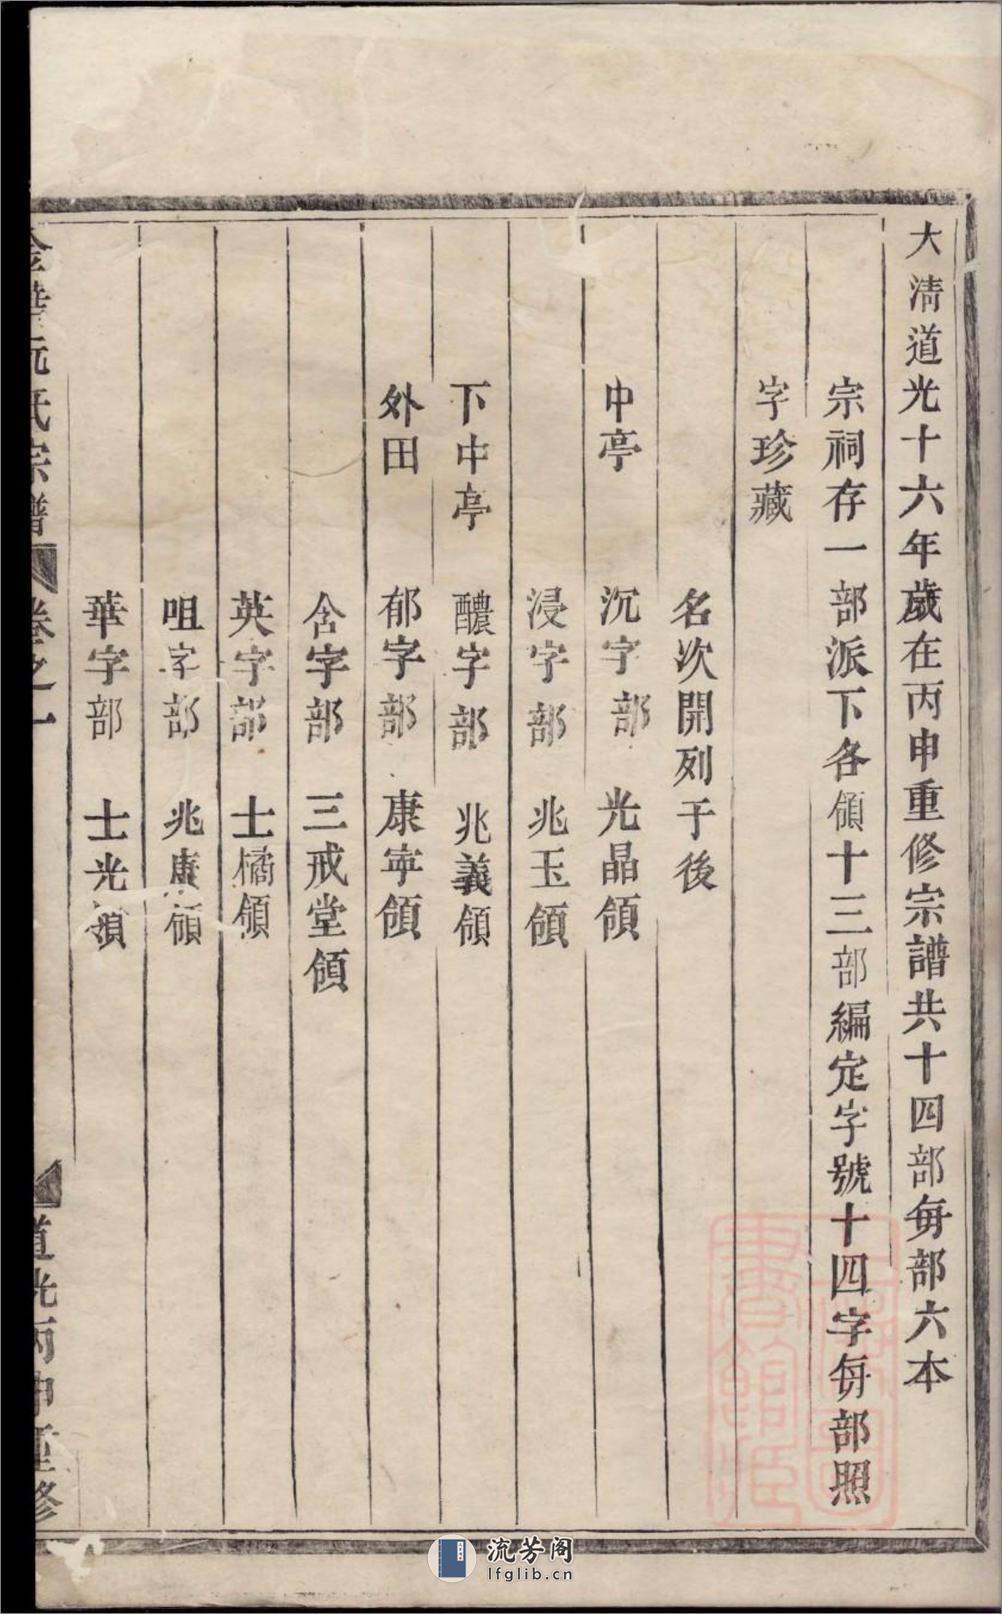 大清道光十六年歲在丙申重修宗譜共十四部每部六本
宗祠存一部派下各領十三部編定字號十四字每部照
字珍藏
名次開列于後
中亭 沉字部 光晶領
浸字部 兆玉領
下中亭 醲字部 兆義領
外田 郁字部 康寧領
含字部 三戒堂領
英字部 士橘領
咀字部 兆賡領
華字部 士光領
金華阮氏宗譜 卷之一 道光丙申重修
流芳阁
lfglib.cn